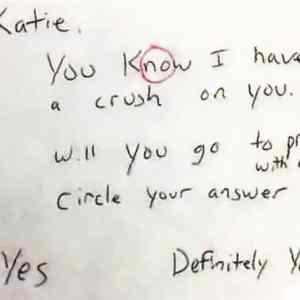 Katie.
You Know I have
a crush on you.
will you go to
with
Circle your answer
Yes Definitely